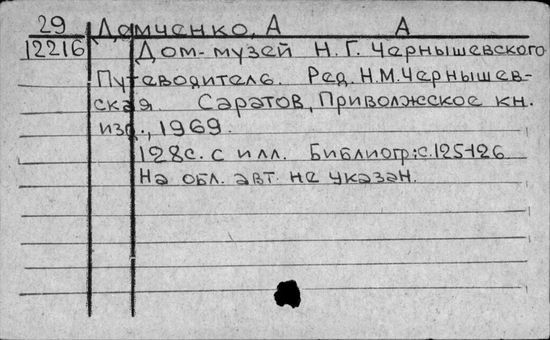 29 Демченко, А А
12216 Дом-музей Н. Г. Чернышевского
Путеводитель. Ред. Н.М.Чернышев-
ская. Саратов, Приволжское кн.
изд., 1969.
128с. с илл. Библиогр.: с.125-126
На обл. авт. не указан.